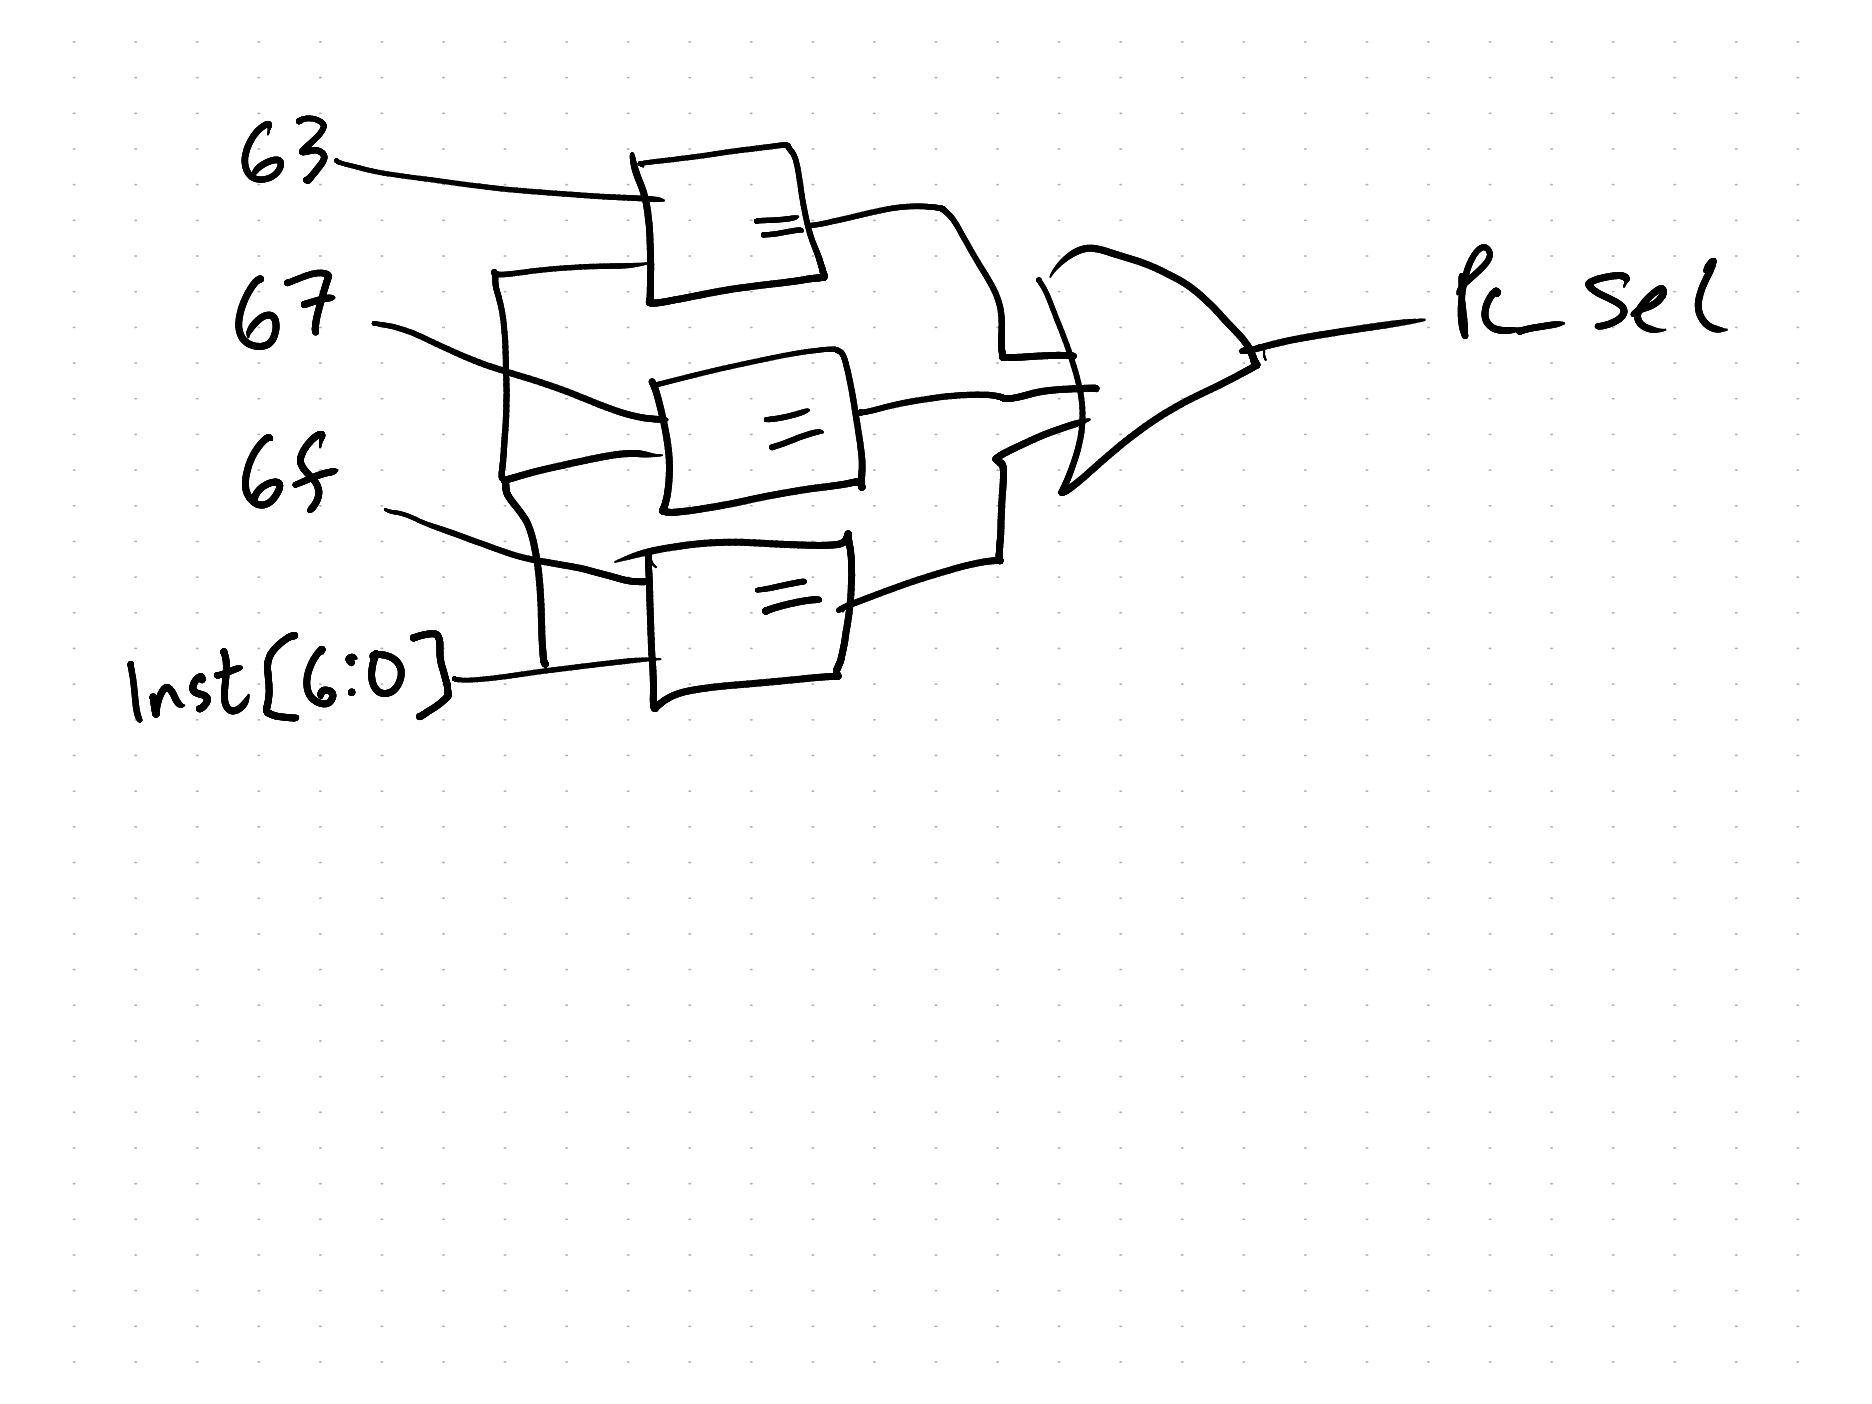 63
67
6f
Inst[6:0]
=
=
=
Pc_sel